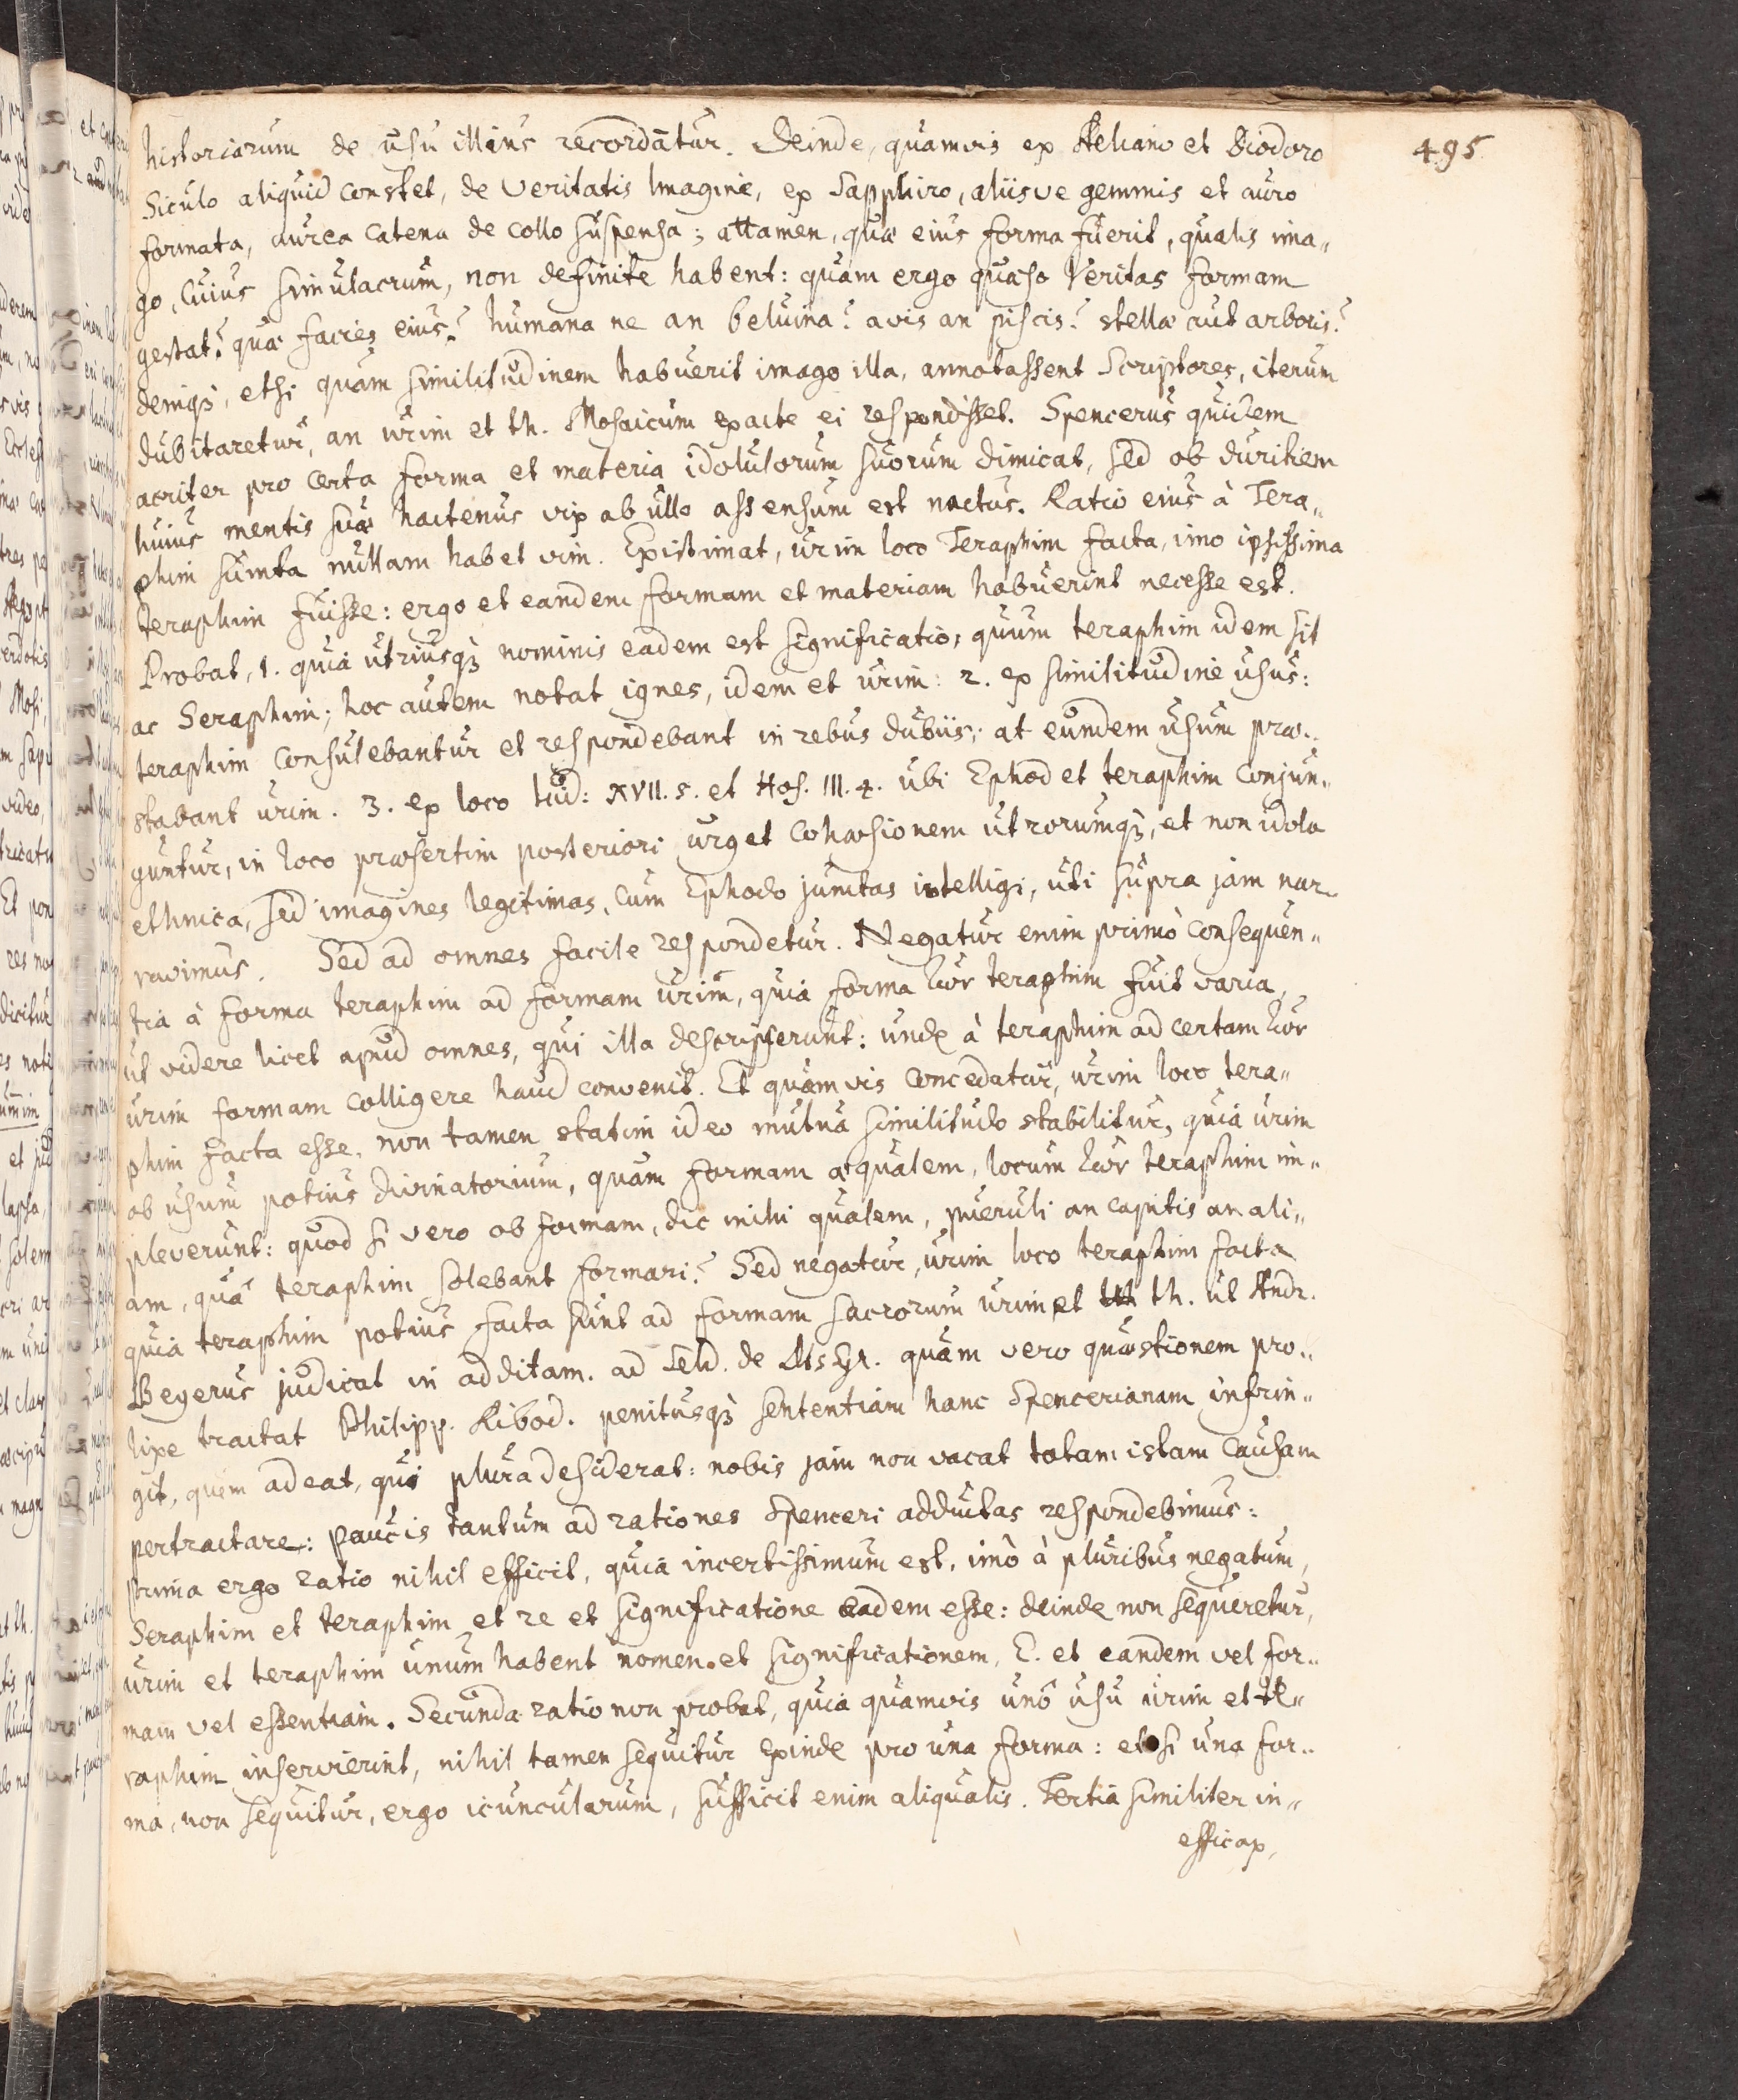 495
historiarum de usu illius recordatur. Deinde, quamvis ex Aeliano et Diodoro
Siculo aliquid constet, de Veritatis Imagine, ex Sapphiro, aliisve gemmis et auro
formata, aurea catena de collo suspensa; attamen, quae eius forma fuerit, qualis ima„
go, cuius simulacrum, non definite habent: quam ergo quaeso Veritas formam
gestat? quae facies eius? humana ne an beluina? avis an piscis? stellae aut arboris?
deniq;, etsi quam similitudinem habuerit imago illa, annotassent Scriptores, iterum
dubitaretur, an urim et th. Mosaicum exacte ei respondisset. Spencerus quidem
acriter pro certa forma et materia idolulorum suorum dimicat, sed ob duritiem
huius mentis suae hactenus vix ab ullo assensum est nactus. Ratio eius à Tera„
phim sumta nullam habet vim. Existimat, urim loco Teraphim facta, imo ipsissima
teraphim fuisse: ergo et eandem formam et materiam habuerint necesse est.
Probat, 1. quia utriusq; nominis eadem est significatio, quum teraphim idem sit
ac Seraphim; hoc autem notat ignes, idem et urim: 2. ex similitudine usus:
teraphim consulebantur et respondebant in rebus dubiis; at eundem usum prae„
stabant urim. 3. ex loco Iud: XVII. 5. et Hos. III. 4. ubi Ephod et teraphim conjun„
guntur, in loco praesertim posteriori urget cohaesionem utrorumq;, et non idola
ethnica, sed imagines legitimas, cum Ephodo junctas intelligi, uti supra jam nar„
ravimus. Sed ad omnes facile respondetur. Negatur enim primò consequen„
tia à forma teraphim ad formam urim, quia forma των teraphim fuit varia,
ut videre licet apud omnes, qui illa descripserunt: unde à teraphim ad certam των
urim formam colligere haud convenit. Et quamvis concedatur, urim loco tera„
phim facta esse, non tamen statim ideo mutua similitudo stabilitur, quia urim
ob usum potius divinatorium, quam formam aequalem, locum των teraphim im„
pleverunt: quod si vero ob formam, dic mihi qualem, pueruli an capitis an ali„
am, quâ teraphim solebant formari? Sed negatur, urim loco teraphim facta
quia teraphim potius facta sunt ad formam sacrorum urim et th. ut Andr.
Beyerus judicat in additam. ad Seld. de Dis Syr. quam vero quaestionem pro„
lixe tractat Philipp. Ribod. penitusq; sententiam hanc Spencerianam infrin„
git, quem adeat, qui plura desiderat: nobis jam non vacat totam istam causam
pertractare: paucis tantum ad rationes Spenceri adductas respondebimus:
prima ergo ratio nihil efficit, quia incertissimum est, imò à pluribus negatum,
Seraphim et teraphim et re et significatione eadem esse: deinde non sequeretur,
urim et teraphim unum habent nomen et significationem, E. et eandem vel for„
mam vel essentiam. Secunda ratio non probat, quia quamvis unô usu urim et te„
raphim inservierint, nihil tamen sequitur exinde pro una forma: et si una for„
ma, non sequitur, ergo icuncularum, sufficit enim aliqualis. Tertia similiter in„
efficax,